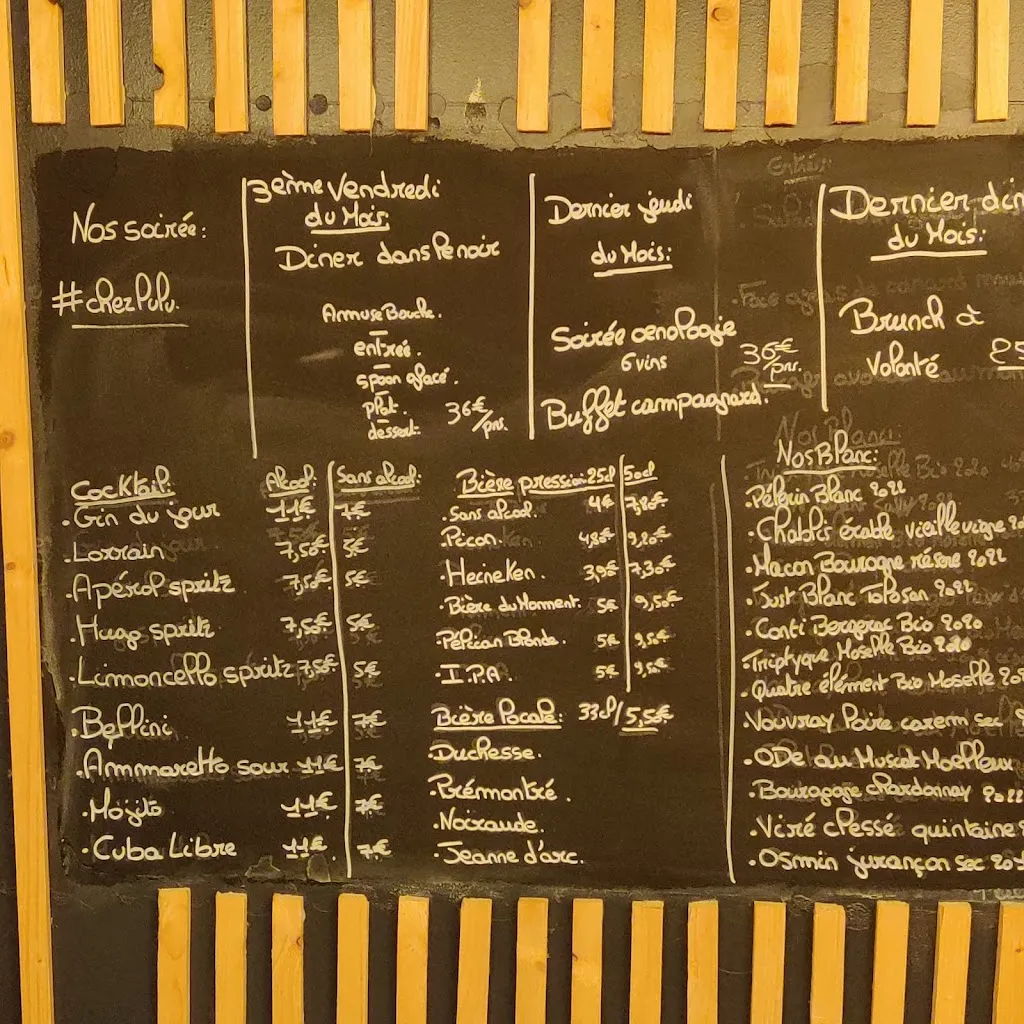 Nos soirée:
#chezlulu.
3eme Vendredi
du Mois:
Diner dans le noir
Amuse Bouche.
entrée.
spoon glacé.
plat.
dessert.
36€/prs.
Dernier jeudi
du Mois:
Soirée oenologie
6 vins
36€/prs.
Buffet campagnard.
Dernier dim
du Mois:
Brunch à
Volonté 25
Cocktail: Alcool: Sans alcool:
.Gin du jour 11€ 7€
.Lorrain 7,50€ 5€
.Apérol spritz 7,50€ 5€
.Hugo spritz 7,50€ 5€
.Limoncello spritz 7,50€ 5€
.Bellini 11€ 7€
.Ammaretto sour 11€ 7€
.Mojito 11€ 7€
.Cuba Libre 11€ 7€
Bière pression: 25cl 50cl
.Sans alcool. 4€
.Picon. 4,80€ 9,20€
.Heineken. 3,90€ 7,30€
.Bière du Momment. 5€ 9,50€
.Pélican Blonde. 5€ 9,50€
.I.P.A 5€ 9,50€
Bière locale: 33cl/5,50€
Duchesse.
.Prémontré.
.Noiraude.
.Jeanne d'arc.
Nos Blanc:
.Pélerin Blanc 2022
.Chablis érable vieille vigne
.Macon Bourogne 2022
.Just Blanc Tolosan 2022
.Conti Bergerac Bio 2020
.Triptyque Moselle Bio 2020
.Quatre élément Bio Moselle
.Vouvray Poire carem sec
.ODe au Muscat Moelleux
.Bourgogne chardonnay 2022
.Viré clessé quintaine
.Osmin jurançon sec